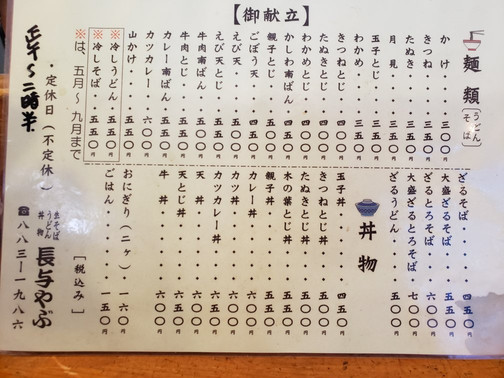 【御献立】
麺類(うどん そば)
かけ・・・・三〇〇円
きつね・・・三五〇円
たぬき・・・三五〇円
月見・・・・三五〇円
玉子とじ・・三五〇円
わかめ・・・三五〇円
きつねとじ・四〇〇円
たぬきとじ・四〇〇円
わかめとじ・四〇〇円
かしわ南ばん・四五〇円
親子とじ・・四五〇円
ごぼう天・・四五〇円
えび天・・・五〇〇円
えび天とじ・五五〇円
牛肉南ばん・五〇〇円
牛肉とじ・・五五〇円
カレー南ばん・五〇〇円
カツカレー・六〇〇円
山かけ・・・五五〇円
※冷しうどん・五五〇円
※冷しそば・五五〇円
※は、五月〜九月まで
ざるそば・・・四五〇円
大盛ざるそば・五五〇円
ざるとろそば・六〇〇円
大盛ざるとろそば・七〇〇円
ざるうどん・・五〇〇円
丼物
玉子丼・・・・四五〇円
きつねとじ丼・五〇〇円
たぬきとじ丼・五〇〇円
木の葉とじ丼・五五〇円
親子丼・・・・五五〇円
カレー丼・・・五〇〇円
カツ丼・・・・六〇〇円
カツカレー丼・六五〇円
天丼・・・・・六〇〇円
天とじ丼・・・六五〇円
牛丼・・・・・六〇〇円
おにぎり(二ヶ)・一六〇円
ごはん・・・・一五〇円
[税込み]
・定休日(不定休)
生そば うどん 丼物 長与やぶ
☎八八三ー一九八六
正午〜二時半